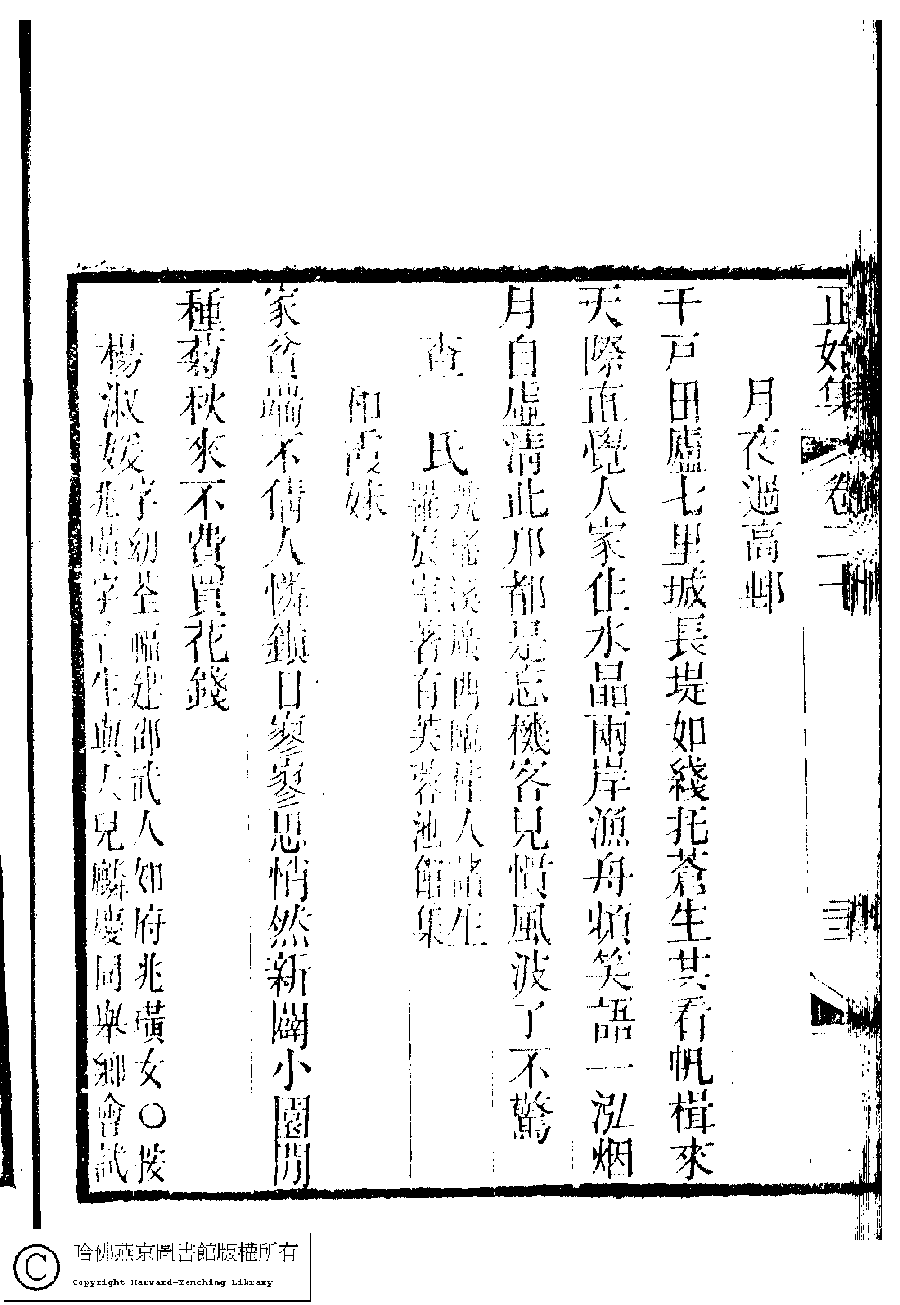 正始集 卷二十 三
月夜過高郵
千戶田廬七里城長堤如綫托蒼生其看帆楫來
天際直覺人家住水晶兩岸漁舟頻笑語一泓烟
月自虛清此邦都是忘機客見慣風波了不驚
查氏
溪廣西臨桂人諸生
羅宸室著有芙蓉池館集
和霞妹
家貧端不倩人憐鎮日寥寥思悄然新闢小園閒
種菊秋來不費買花錢
楊淑媛
字幼荃福建邵武人知府兆璜女○按
兆璜字生與大兒麟慶同舉鄉會試
哈佛燕京圖書館版權所有
© Copyright Harvard-Yenching Library